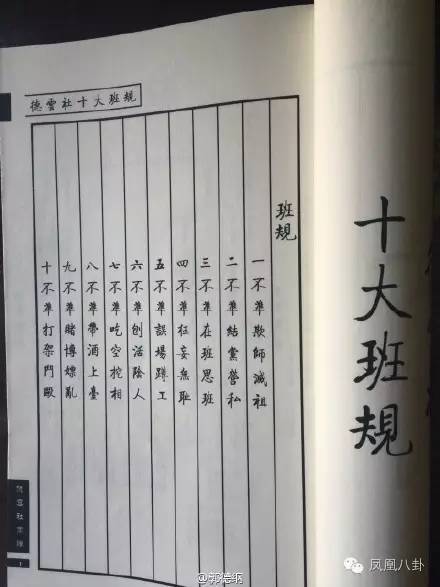 十大班規
德雲社十大班規
班規
一不準欺師滅祖
二不準結黨營私
三不準在班思班
四不準狂妄無恥
五不準誤場蹲工
六不準刨活陰人
七不準吃空挖相
八不準帶酒上臺
九不準賭博嫖亂
十不準打架鬥毆
@郭德纲
凤凰八卦